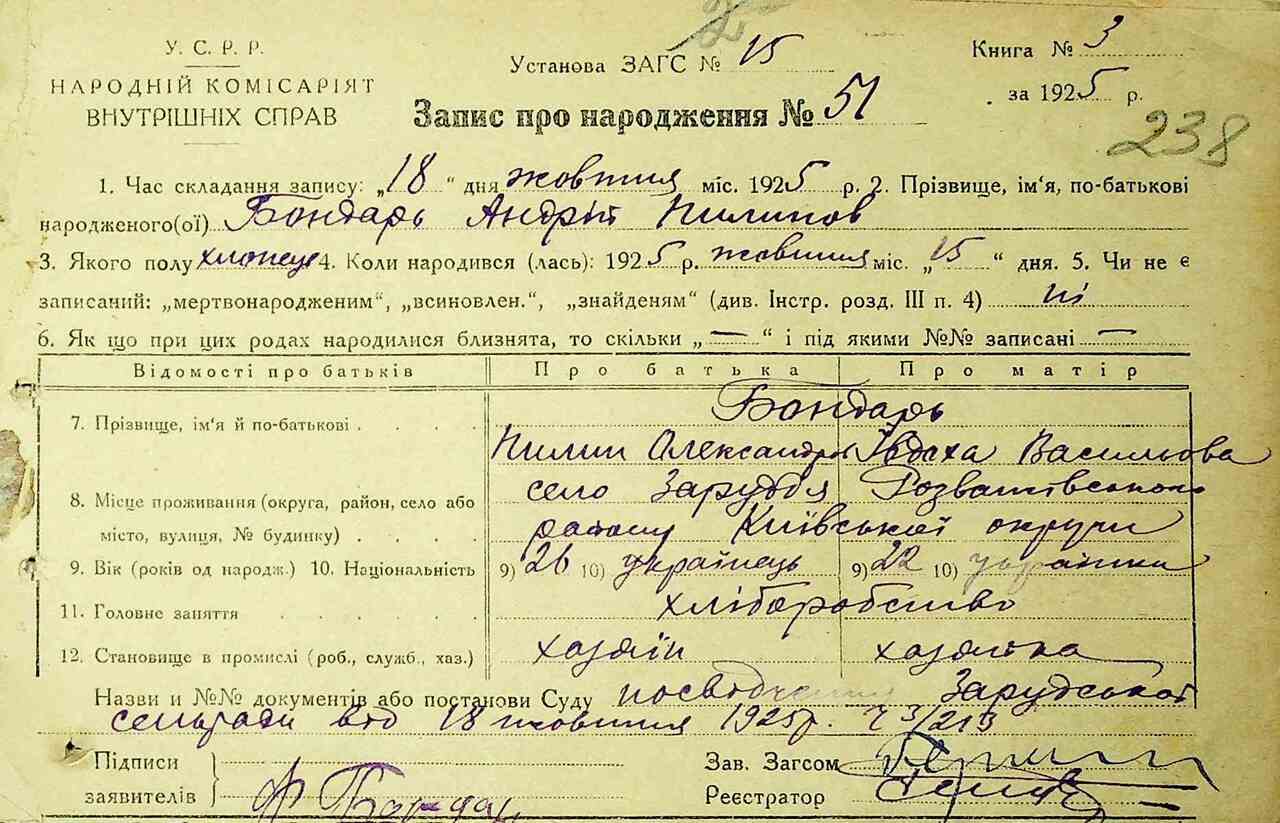 У. С. Р. Р.
НАРОДНІЙ КОМІСАРІЯТ
ВНУТРІШНІХ СПРАВ
Установа ЗАГС № 15
Книга № 3
за 1925 р.
Запис про народження № 51
238
1. Час складання запису: „18“ дня жовтня міс. 1925 р. 2. Прізвище, ім'я, по-батькові
народженого(ої) Бондарь Андрій Пилипов
3. Якого полу хлопець 4. Коли народився (лась): 1925 р. жовтня міс. „15“ дня. 5. Чи не є
записаний: „мертвонародженим“, „всиновлен.“, „знайденям“ (див. Інстр. розд. III п. 4) ні
6. Як що при цих родах народилися близнята, то скільки „—“ і під якими №№ записані —
Відомості про батьків Про батька Про матір
Бондарь
7. Прізвище, ім'я й по-батькові . . . .
Пилип Олександров Ївдоха Васильова
8. Місце проживання (округа, район, село або село Заруддя Розважівського
місто, вулиця, № будинку) . . . . району Київської округи
9. Вік (років од народж.) 10. Національність 9) 26 10) українець 9) 22 10) українка
11. Головне заняття . . . . . хліборобство
12. Становище в промислі (роб., служб., хаз.) хазяїн хазяйка
Назви и №№ документів або постанови Суду посвідчення Зарудської
сельради від 18 жовтня 1925 р. ч 3/213
Підписи
заявителів
Ф Бондар
Зав. Загсом
Реєстратор